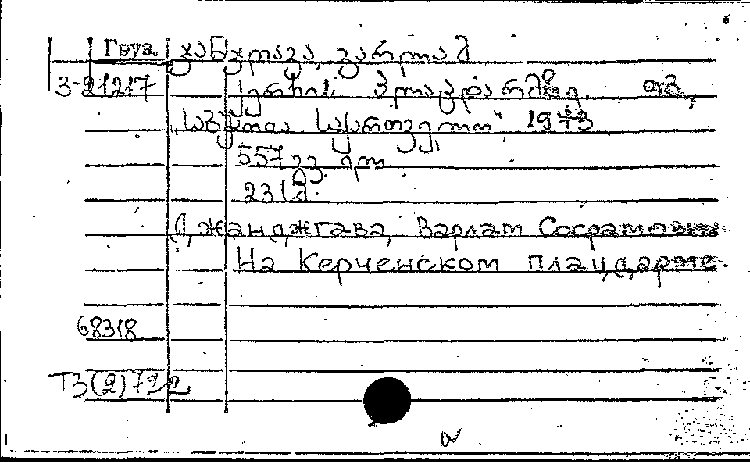 Груз. ჯანჯღავა, ვარლამ
3-21217 ქერჩის პლაცდარმზე. თბ.,
"საბჭოთა საქართველო" 1973
557 გვ.
23 სმ.
Джанджгава, Варлам
На Керченском плацдарме
68318
ТЗ(2)722